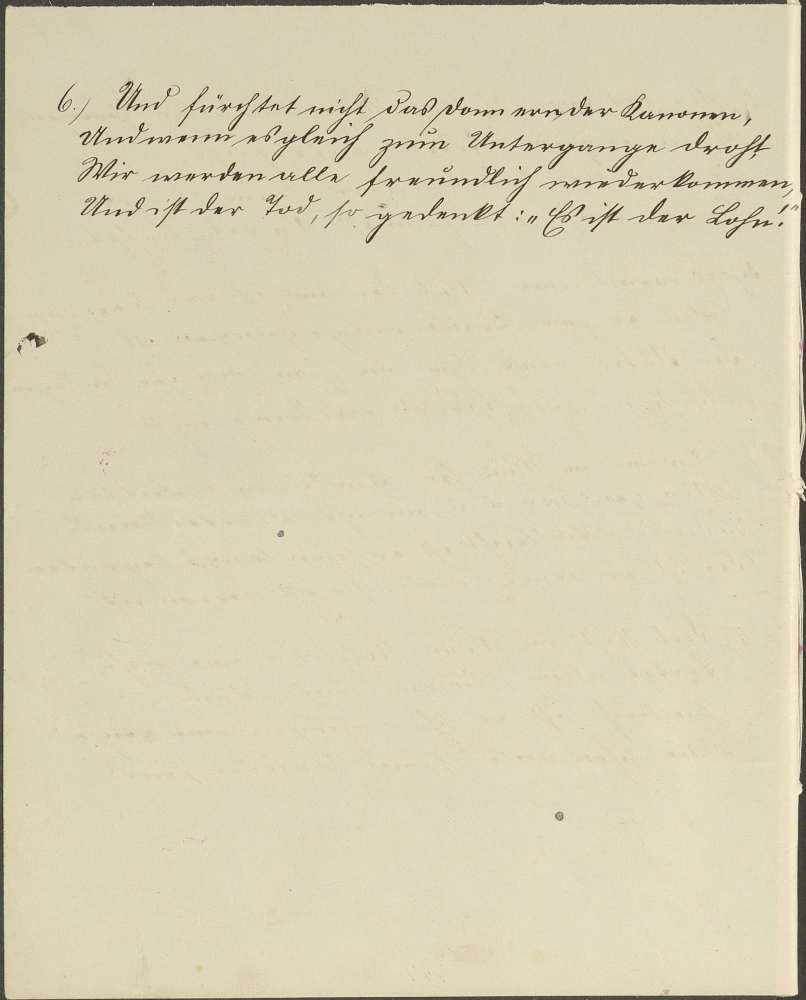 6.) Und fürchtet nicht das Donnern der Kanonen,
Und wenn es gleich zum Untergange droht
Wir werden alle freundlich wiederkommen,
Und ist der Tod, so gedenkt: „Es ist der Lohn!"